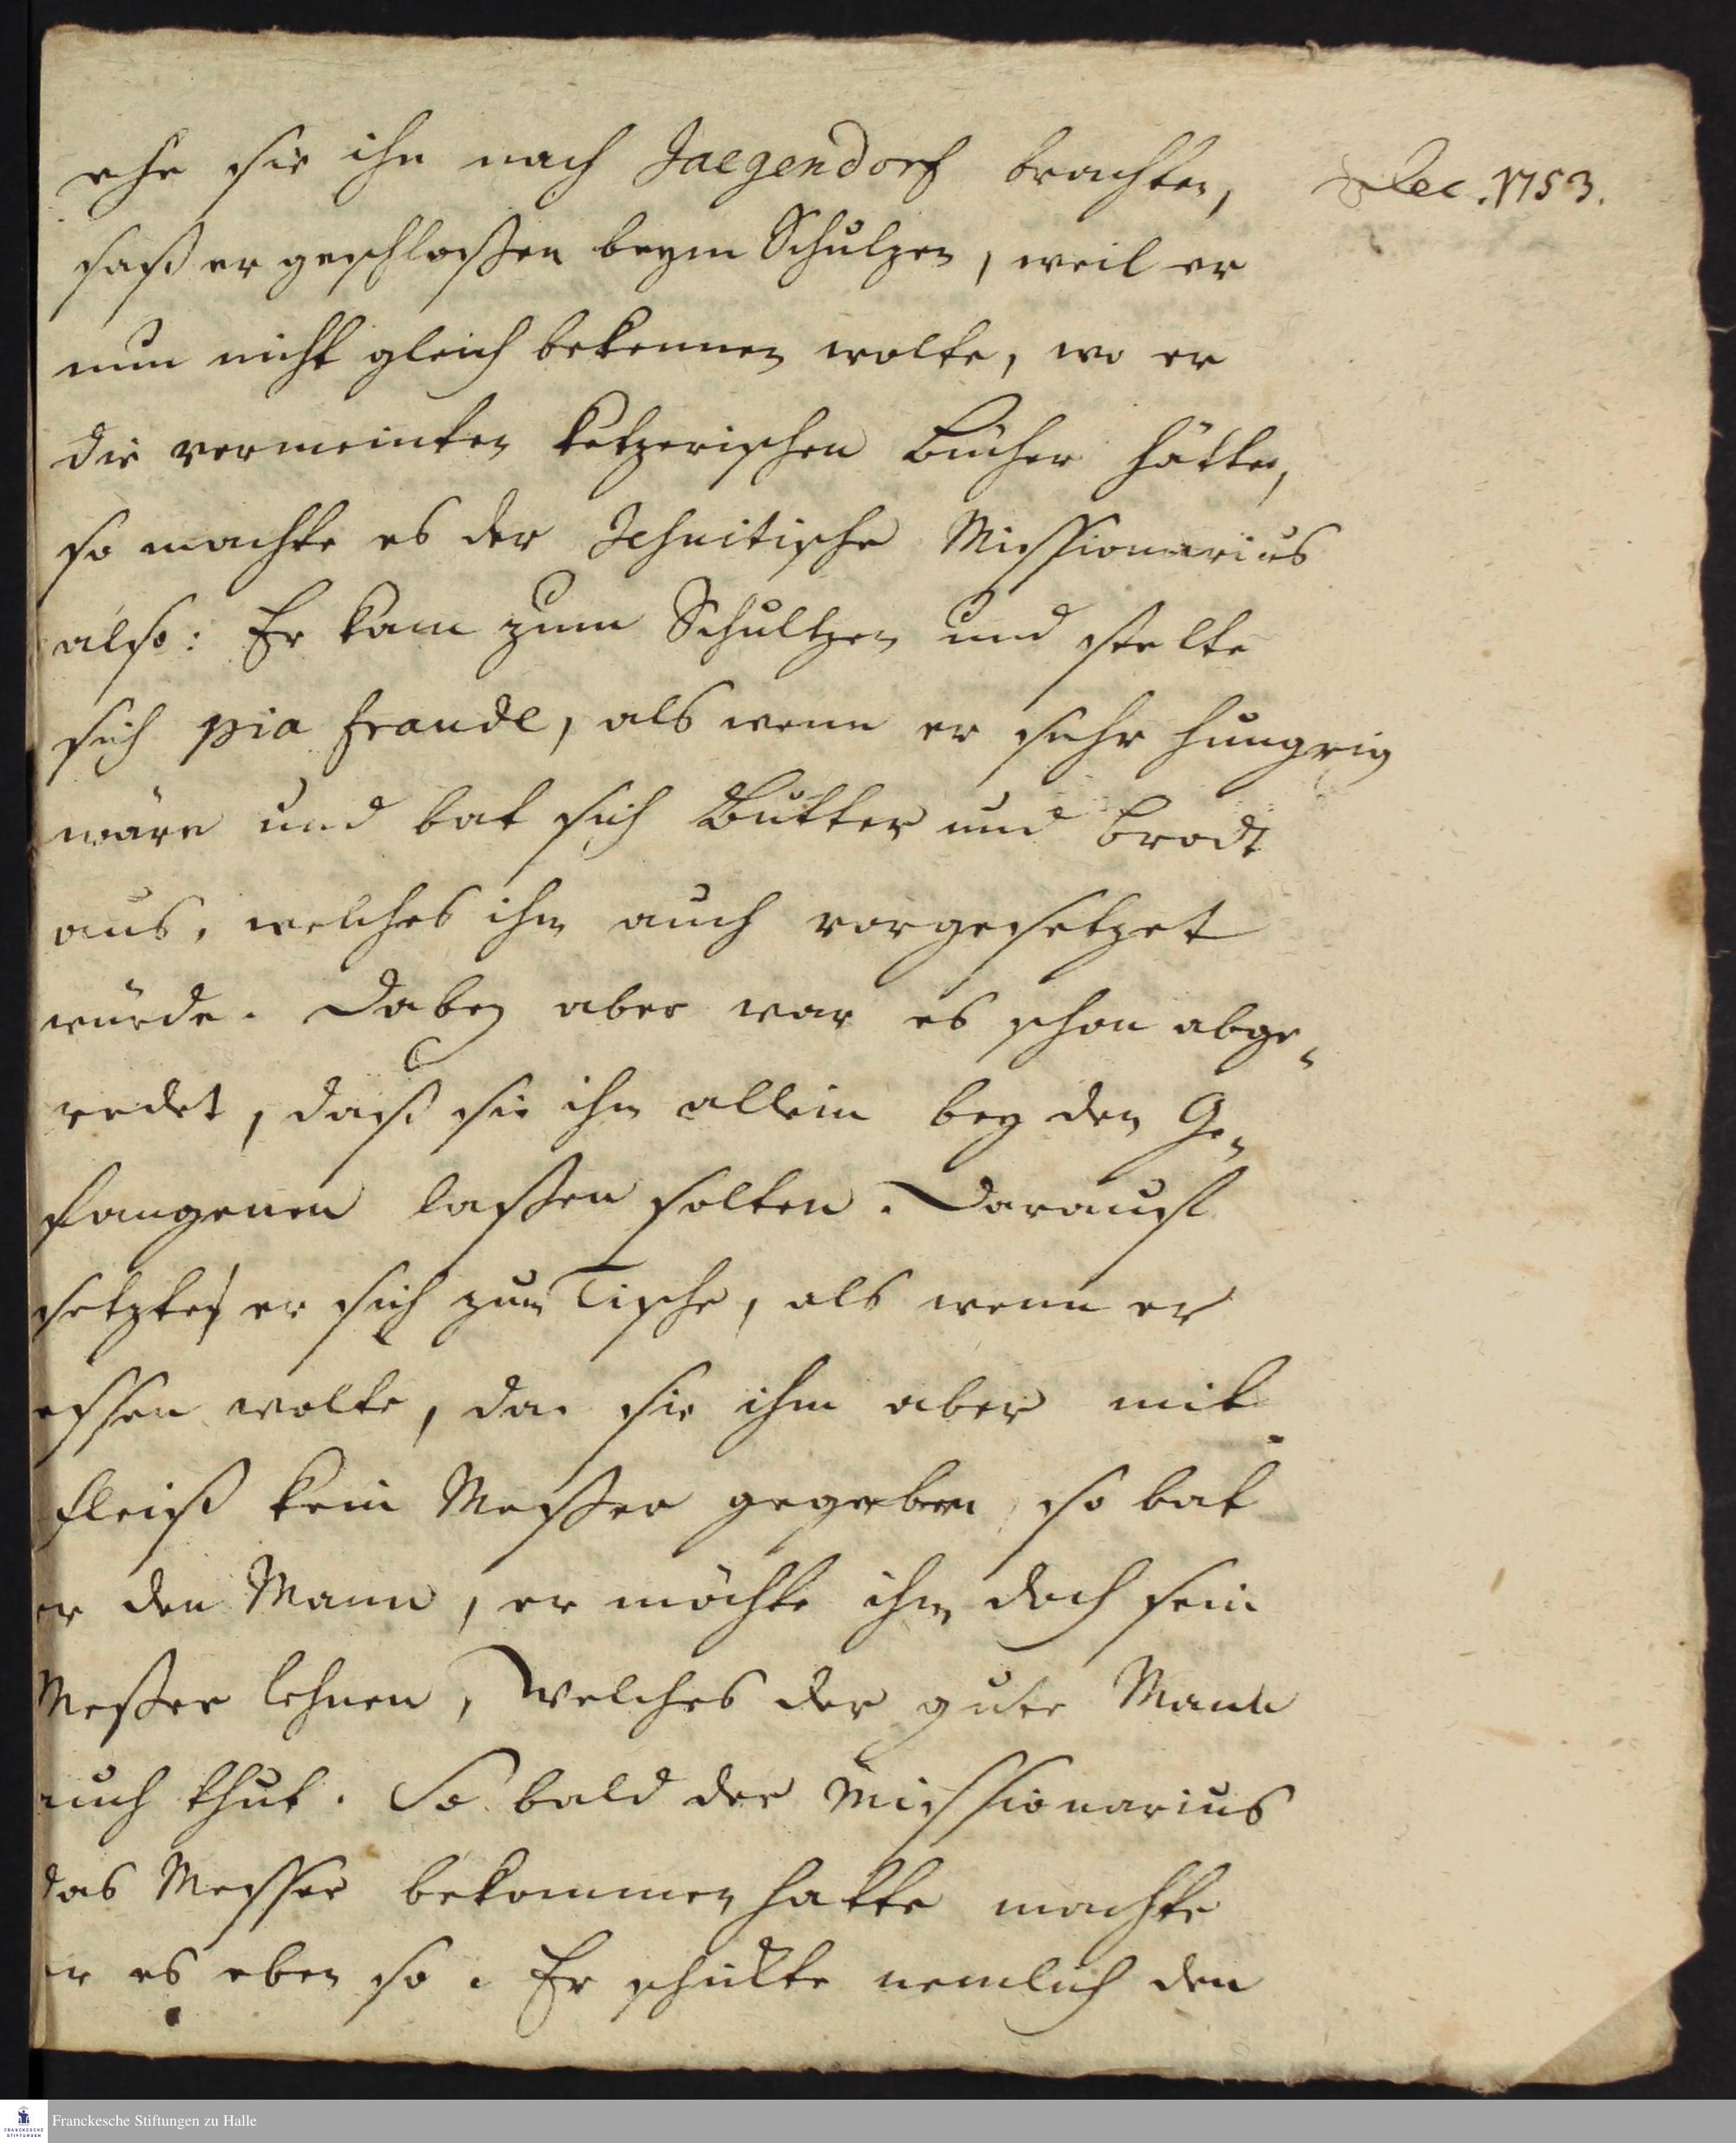 ehe sie ihn nach Jaegendorf brachten,
Dec. 1753.
saß er geschloßen beym Schulzen, weil er
nun nicht gleich bekennen wolte, wo er
die vermeinten ketzerischen Bücher hätte,
so machte es der Jesuitische Missionarius
also: Er kam zum Schultzen und stelte
sich pia fraude, als wenn er sehr hungrig
wäre und bat sich Butter und Brodt
aus, welches ihm auch vorgesetzet
würde. Dabey aber war es schon abge-
redet, daß sie ihn allein bey den Ge-
fangenen laßen solten. Darauf
setzte er sich zum Tische, als wenn er
essen wolte, da sie ihm aber mit
Fleiß kein Messer gegeben, so bat
er den Mann, er möchte ihm doch sein
Meßer lehnen, Welches der gute Mann
auch thut. So bald der Missionarius
das Messer bekommen hatte machte
er es eben so. Er schickte nemlich den
Franckesche Stiftungen zu Halle
FRANCKESCHE
STIFTUNGEN